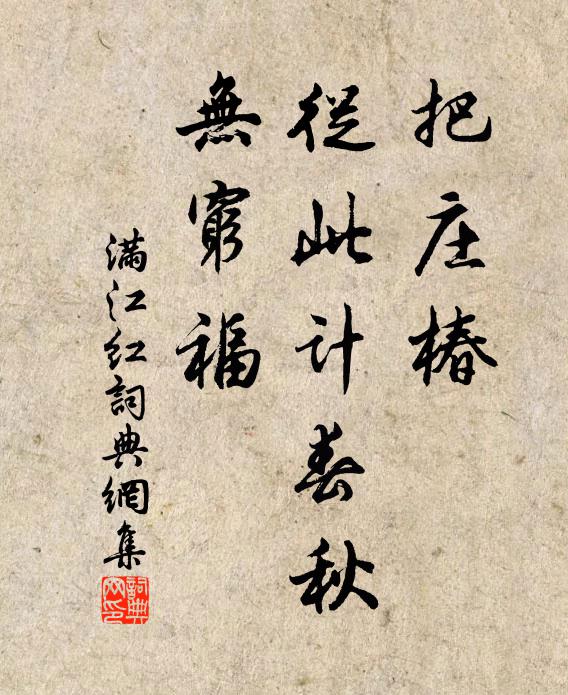 把庄椿
從此计春秋
無窮福
满江红詞典網集
詞典
网印